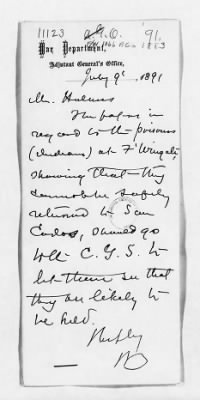 11123 A.G.O. 91.
War Department,
Adjutant General's Office,
July 9, 1891
Mr.
The papers in
regard to the prisoners
(Indians) at Ft Wingate,
showing that they
cannot be safely
returned to San
Carlos, should go
to C. G. S. to
let them see that
they are likely to
be held.